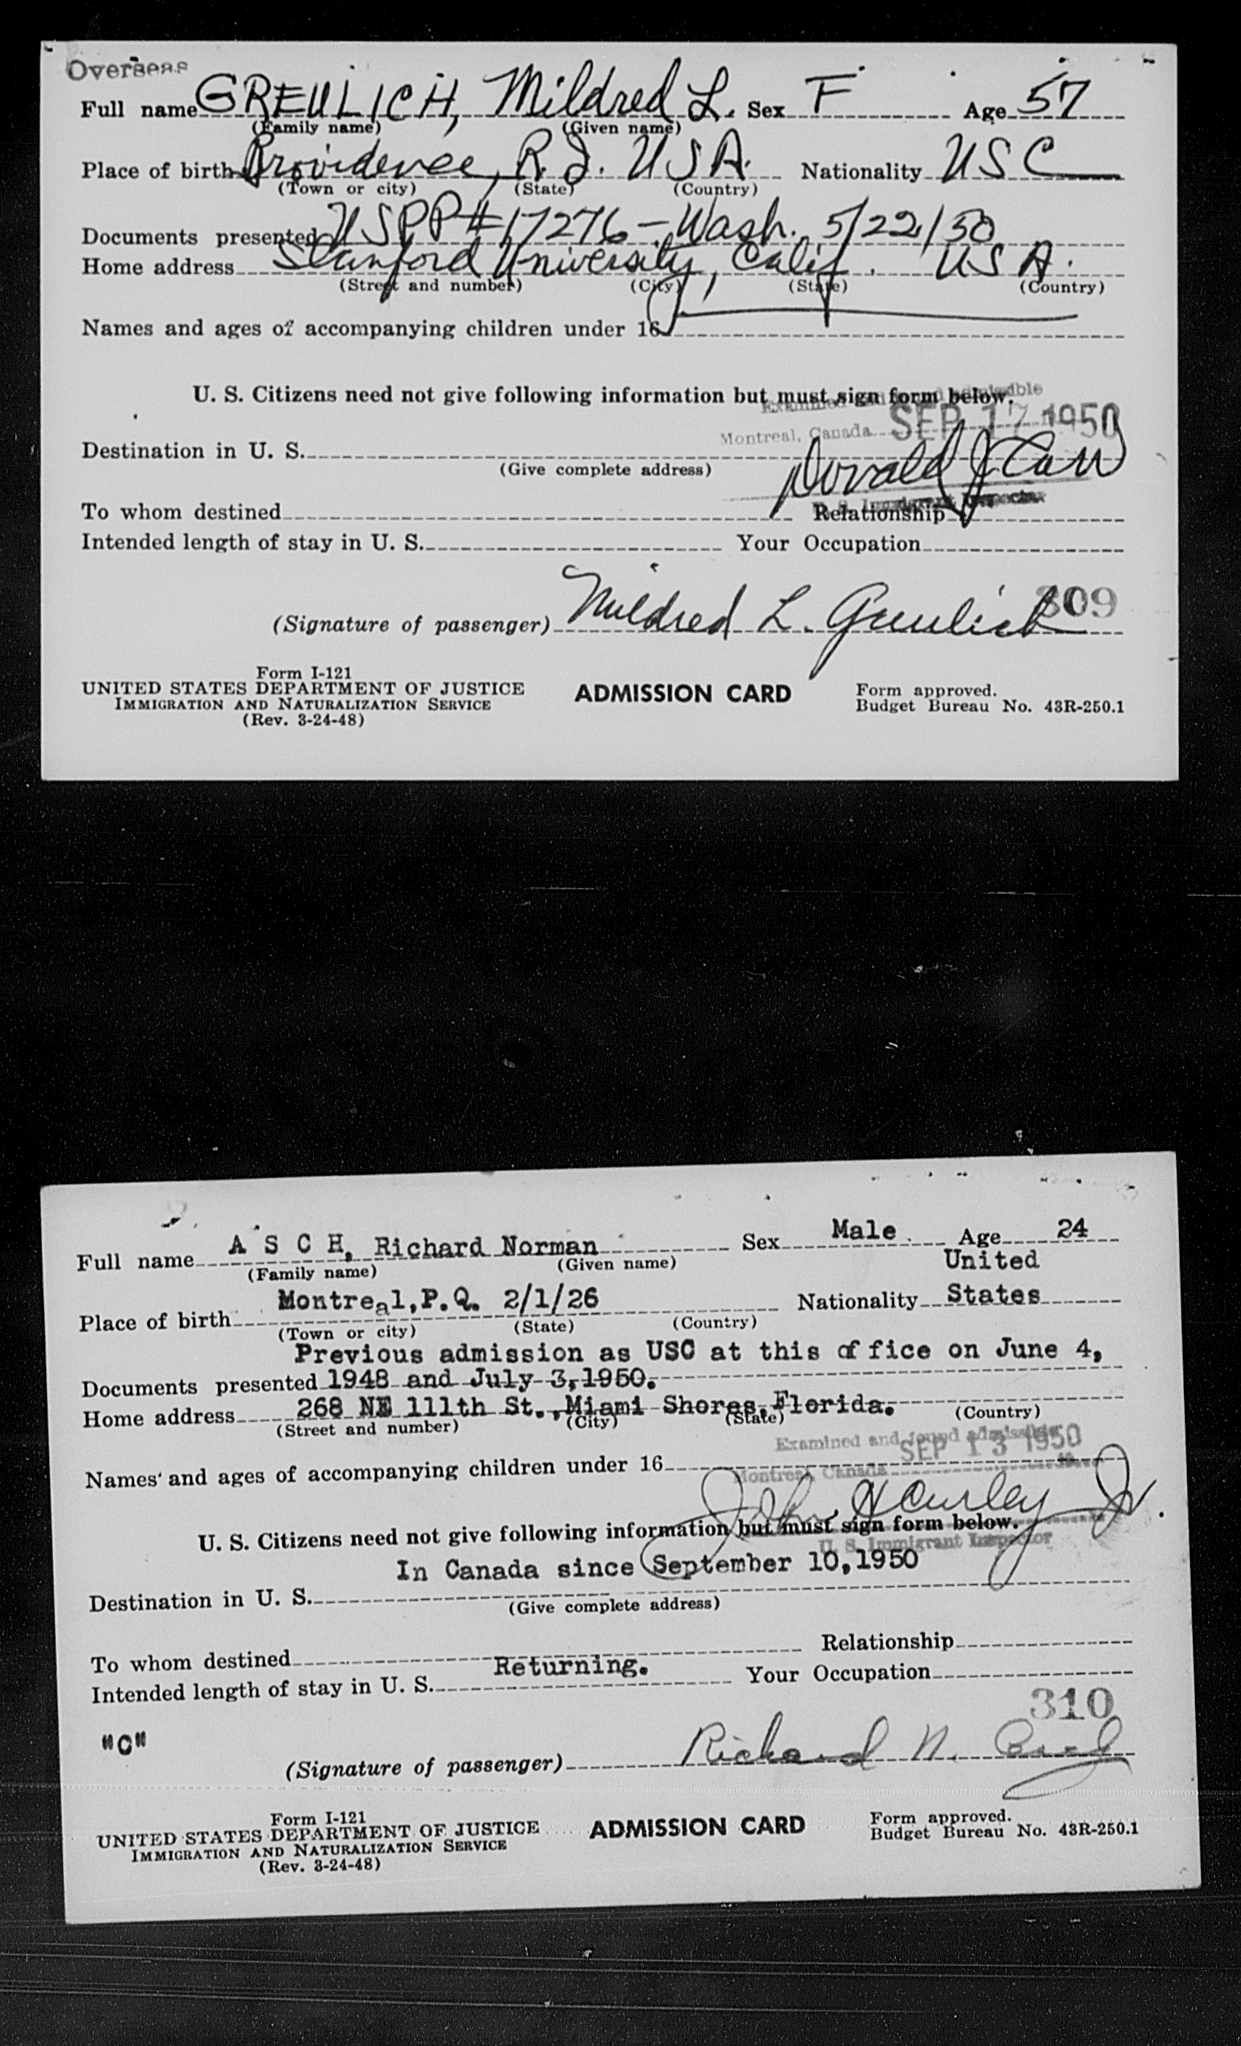 Overseas
Full name GREULICH, Mildred L. Sex F Age 57
(Family name) (Given name)
Place of birth Providence, R.I. USA. Nationality USC
(Town or city) (State) (Country)
Documents presented USPP#17276 - Wash. 5/22/50
Home address Stanford University, Calif. USA.
(Street and number) (City) (State) (Country)
Names and ages of accompanying children under 16
U. S. Citizens need not give following information but must sign form below.
Examined and found admissible
Montreal, Canada SEP 17 1950
Destination in U. S.
(Give complete address)
Donald J Carr
U. S. Immigrant Inspector
To whom destined Relationship
Intended length of stay in U. S. Your Occupation
309
(Signature of passenger) Mildred L. Greulich
Form I-121
UNITED STATES DEPARTMENT OF JUSTICE
IMMIGRATION AND NATURALIZATION SERVICE
(Rev. 3-24-48)
ADMISSION CARD
Form approved.
Budget Bureau No. 43R-250.1
Full name A S C H, Richard Norman Sex Male Age 24
(Family name) (Given name)
United
Place of birth Montreal, P.Q. 2/1/26 Nationality States
(Town or city) (State) (Country)
Previous admission as USC at this office on June 4,
Documents presented 1948 and July 3, 1950.
Home address 268 NE 111th St., Miami Shores, Florida.
(Street and number) (City) (State) (Country)
Examined and found admissible
Names and ages of accompanying children under 16
Montreal, Canada SEP 13 1950
John H Curley Jr.
U. S. Citizens need not give following information but must sign form below.
U. S. Immigrant Inspector
In Canada since September 10, 1950
Destination in U. S.
(Give complete address)
To whom destined Relationship
Intended length of stay in U. S. Returning. Your Occupation
310
"C"
(Signature of passenger) Richard N. Asch
Form I-121
UNITED STATES DEPARTMENT OF JUSTICE
IMMIGRATION AND NATURALIZATION SERVICE
(Rev. 3-24-48)
ADMISSION CARD
Form approved.
Budget Bureau No. 43R-250.1